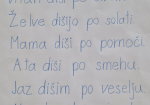 Želve dišijo po solati.
Mama diši po pomoči.
Ata diši po smehu.
Jaz dišim po veselju